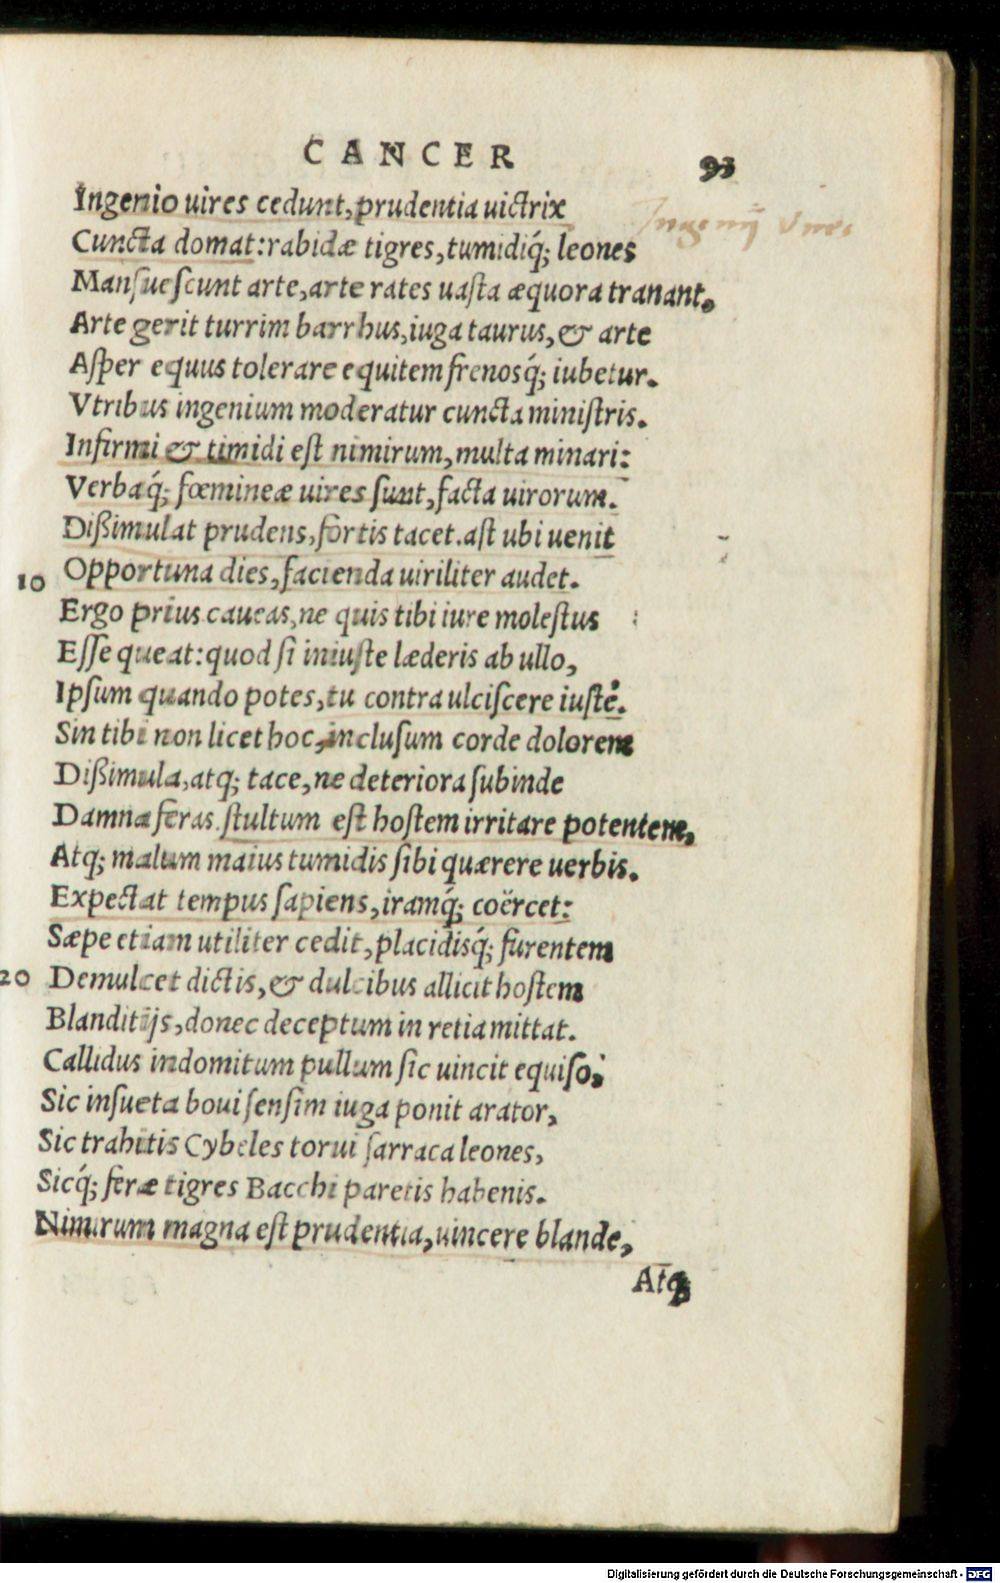 CANCER 93
Ingenio uires cedunt, prudentia uictrix
Ingenij vires
Cuncta domat: rabidæ tigres, tumidiq́; leones
Mansuescunt arte, arte rates uasta æquora tranant.
Arte gerit turrim barrhus, iuga taurus, & arte
Asper equus tolerare equitem frenosq́; iubetur.
Vtribus ingenium moderatur cuncta ministris.
Infirmi & timidi est nimirum, multa minari:
Verbaq́; fœmineæ uires sunt, facta uirorum.
Dißimulat prudens, fortis tacet. ast ubi uenit
10 Opportuna dies, facienda uiriliter audet.
Ergo prius caueas, ne quis tibi iure molestus
Esse queat: quod si iniuste læderis ab ullo,
Ipsum quando potes, tu contra ulciscere iustè.
Sin tibi non licet hoc, inclusum corde dolorem
Dißimula, atq; tace, ne deteriora subinde
Damna feras. stultum est hostem irritare potentem,
Atq; malum maius tumidis sibi quærere uerbis.
Expectat tempus sapiens, iramq́; coërcet:
Sæpe etiam utiliter cedit, placidisq́; furentem
20 Demulcet dictis, & dulcibus allicit hostem
Blanditijs, donec deceptum in retia mittat.
Callidus indomitum pullum sic uincit equiso,
Sic insueta boui sensim iuga ponit arator,
Sic trahitis Cybeles torui sarraca leones,
Sicq́; feræ tigres Bacchi paretis habenis.
Nimirum magna est prudentia, uincere blande,
Atq;
Digitalisierung gefördert durch die Deutsche Forschungsgemeinschaft - DFG